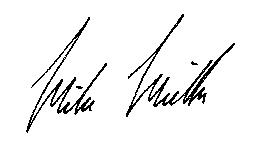 Mike Smith